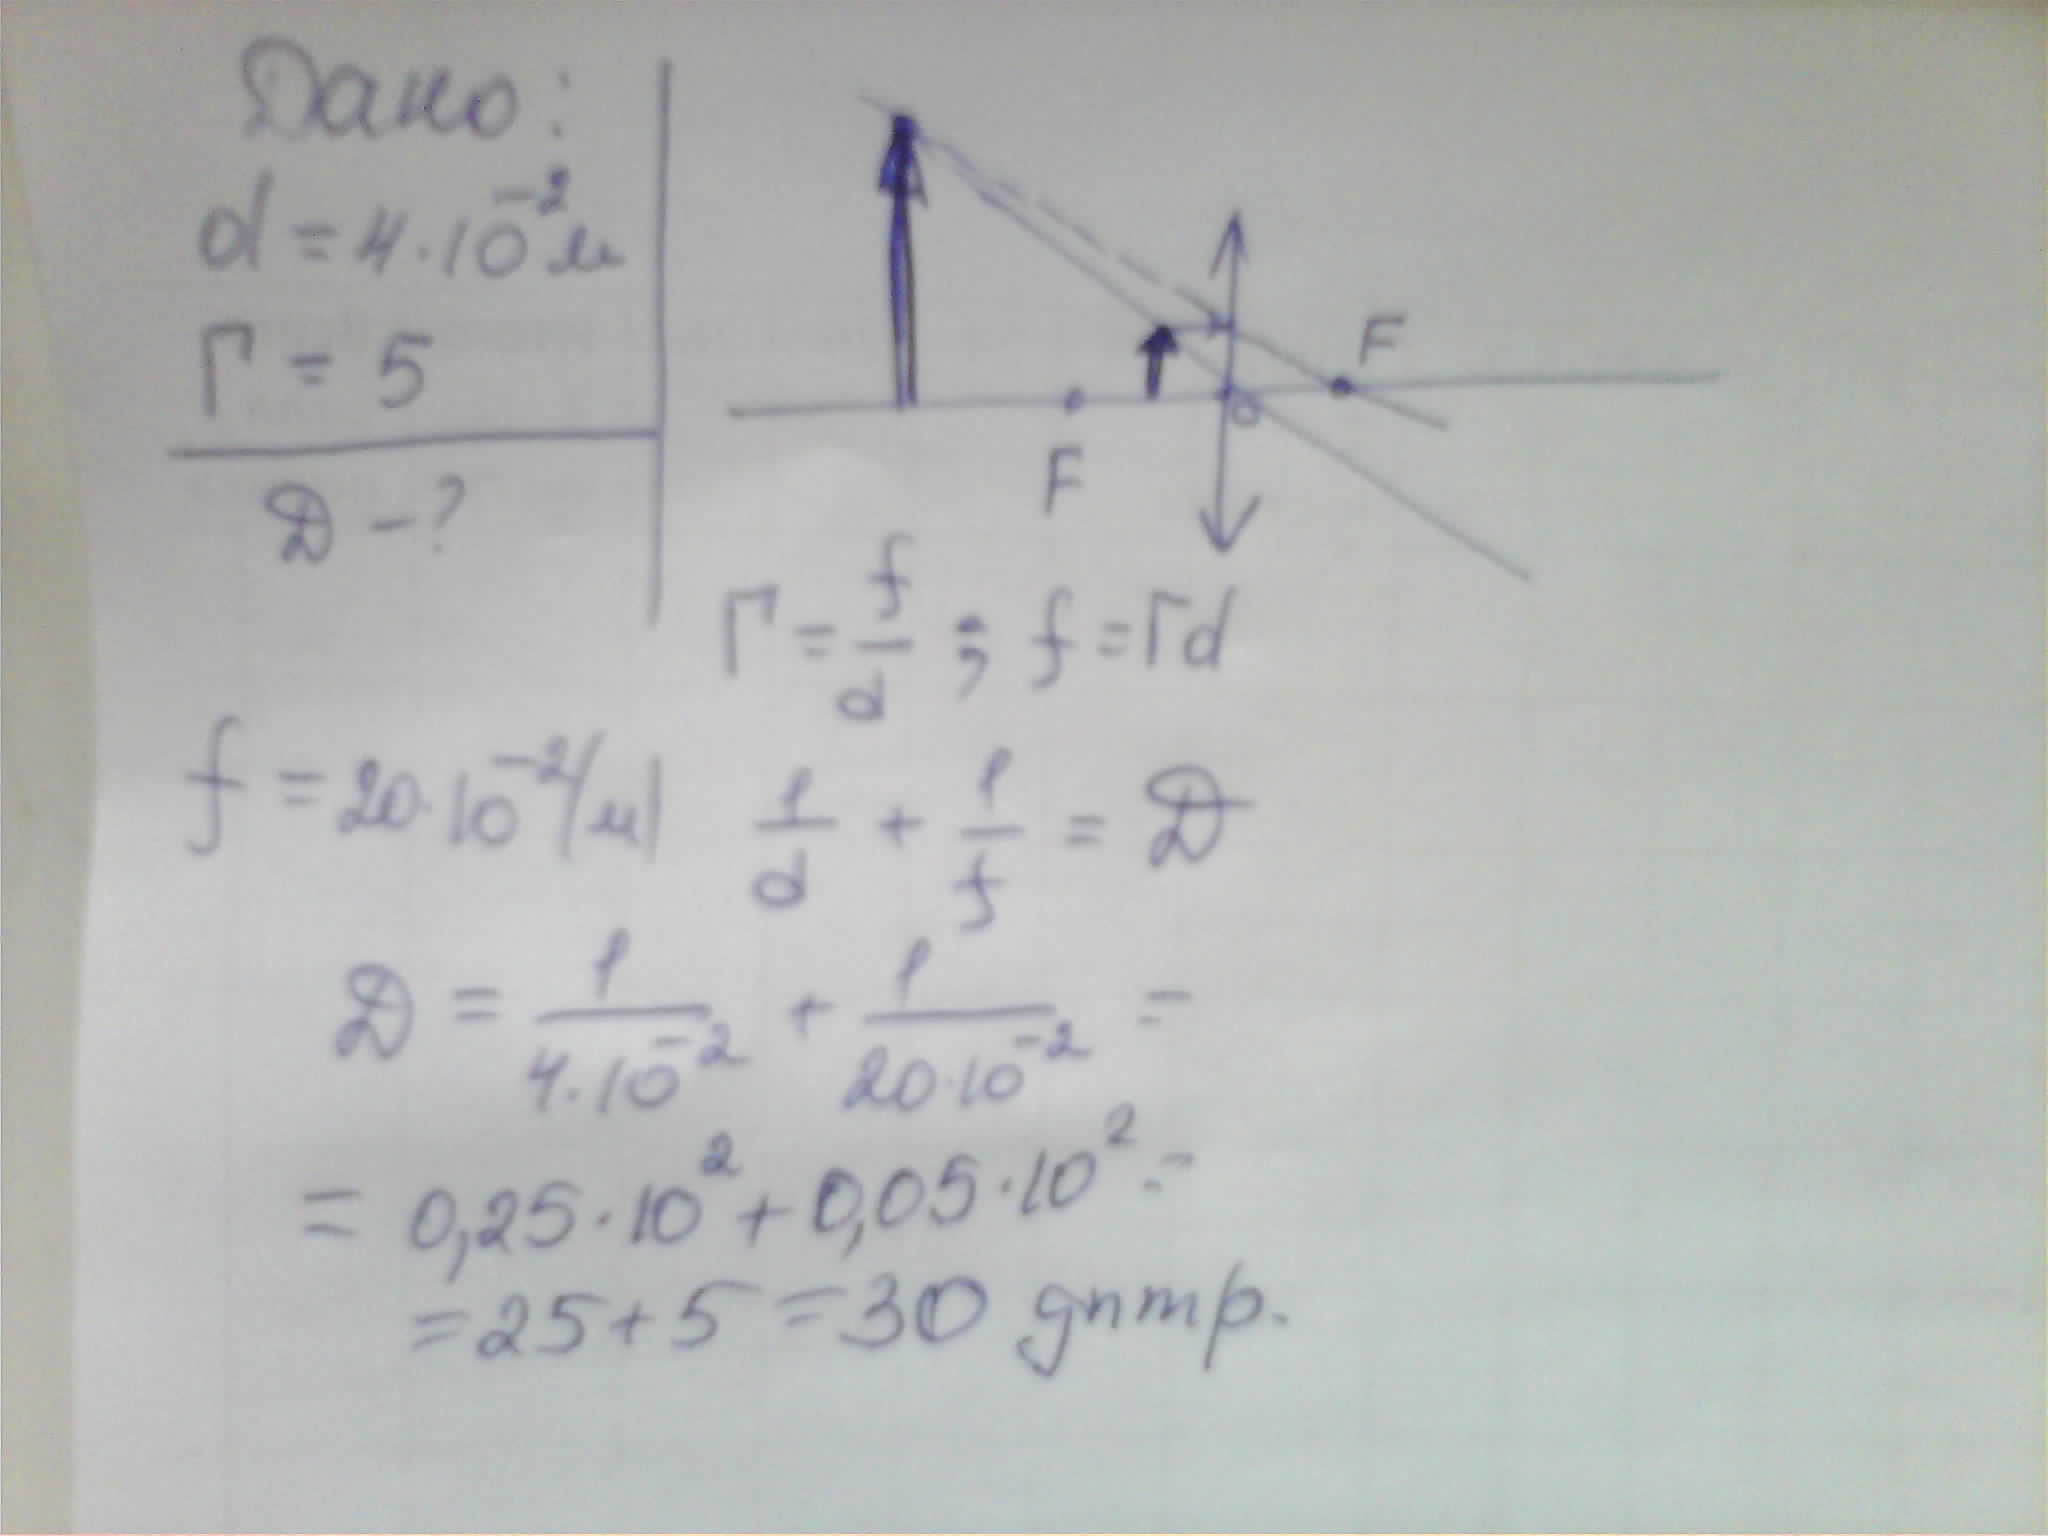 Дано:
d = 4·10⁻² м
Г = 5
D - ?
F
F
O
Г = f/d ; f = Гd
f = 20·10⁻² |м|
1/d + 1/f = D
D = 1/(4·10⁻²) + 1/(20·10⁻²) =
= 0,25·10² + 0,05·10² =
= 25 + 5 = 30 дптр.